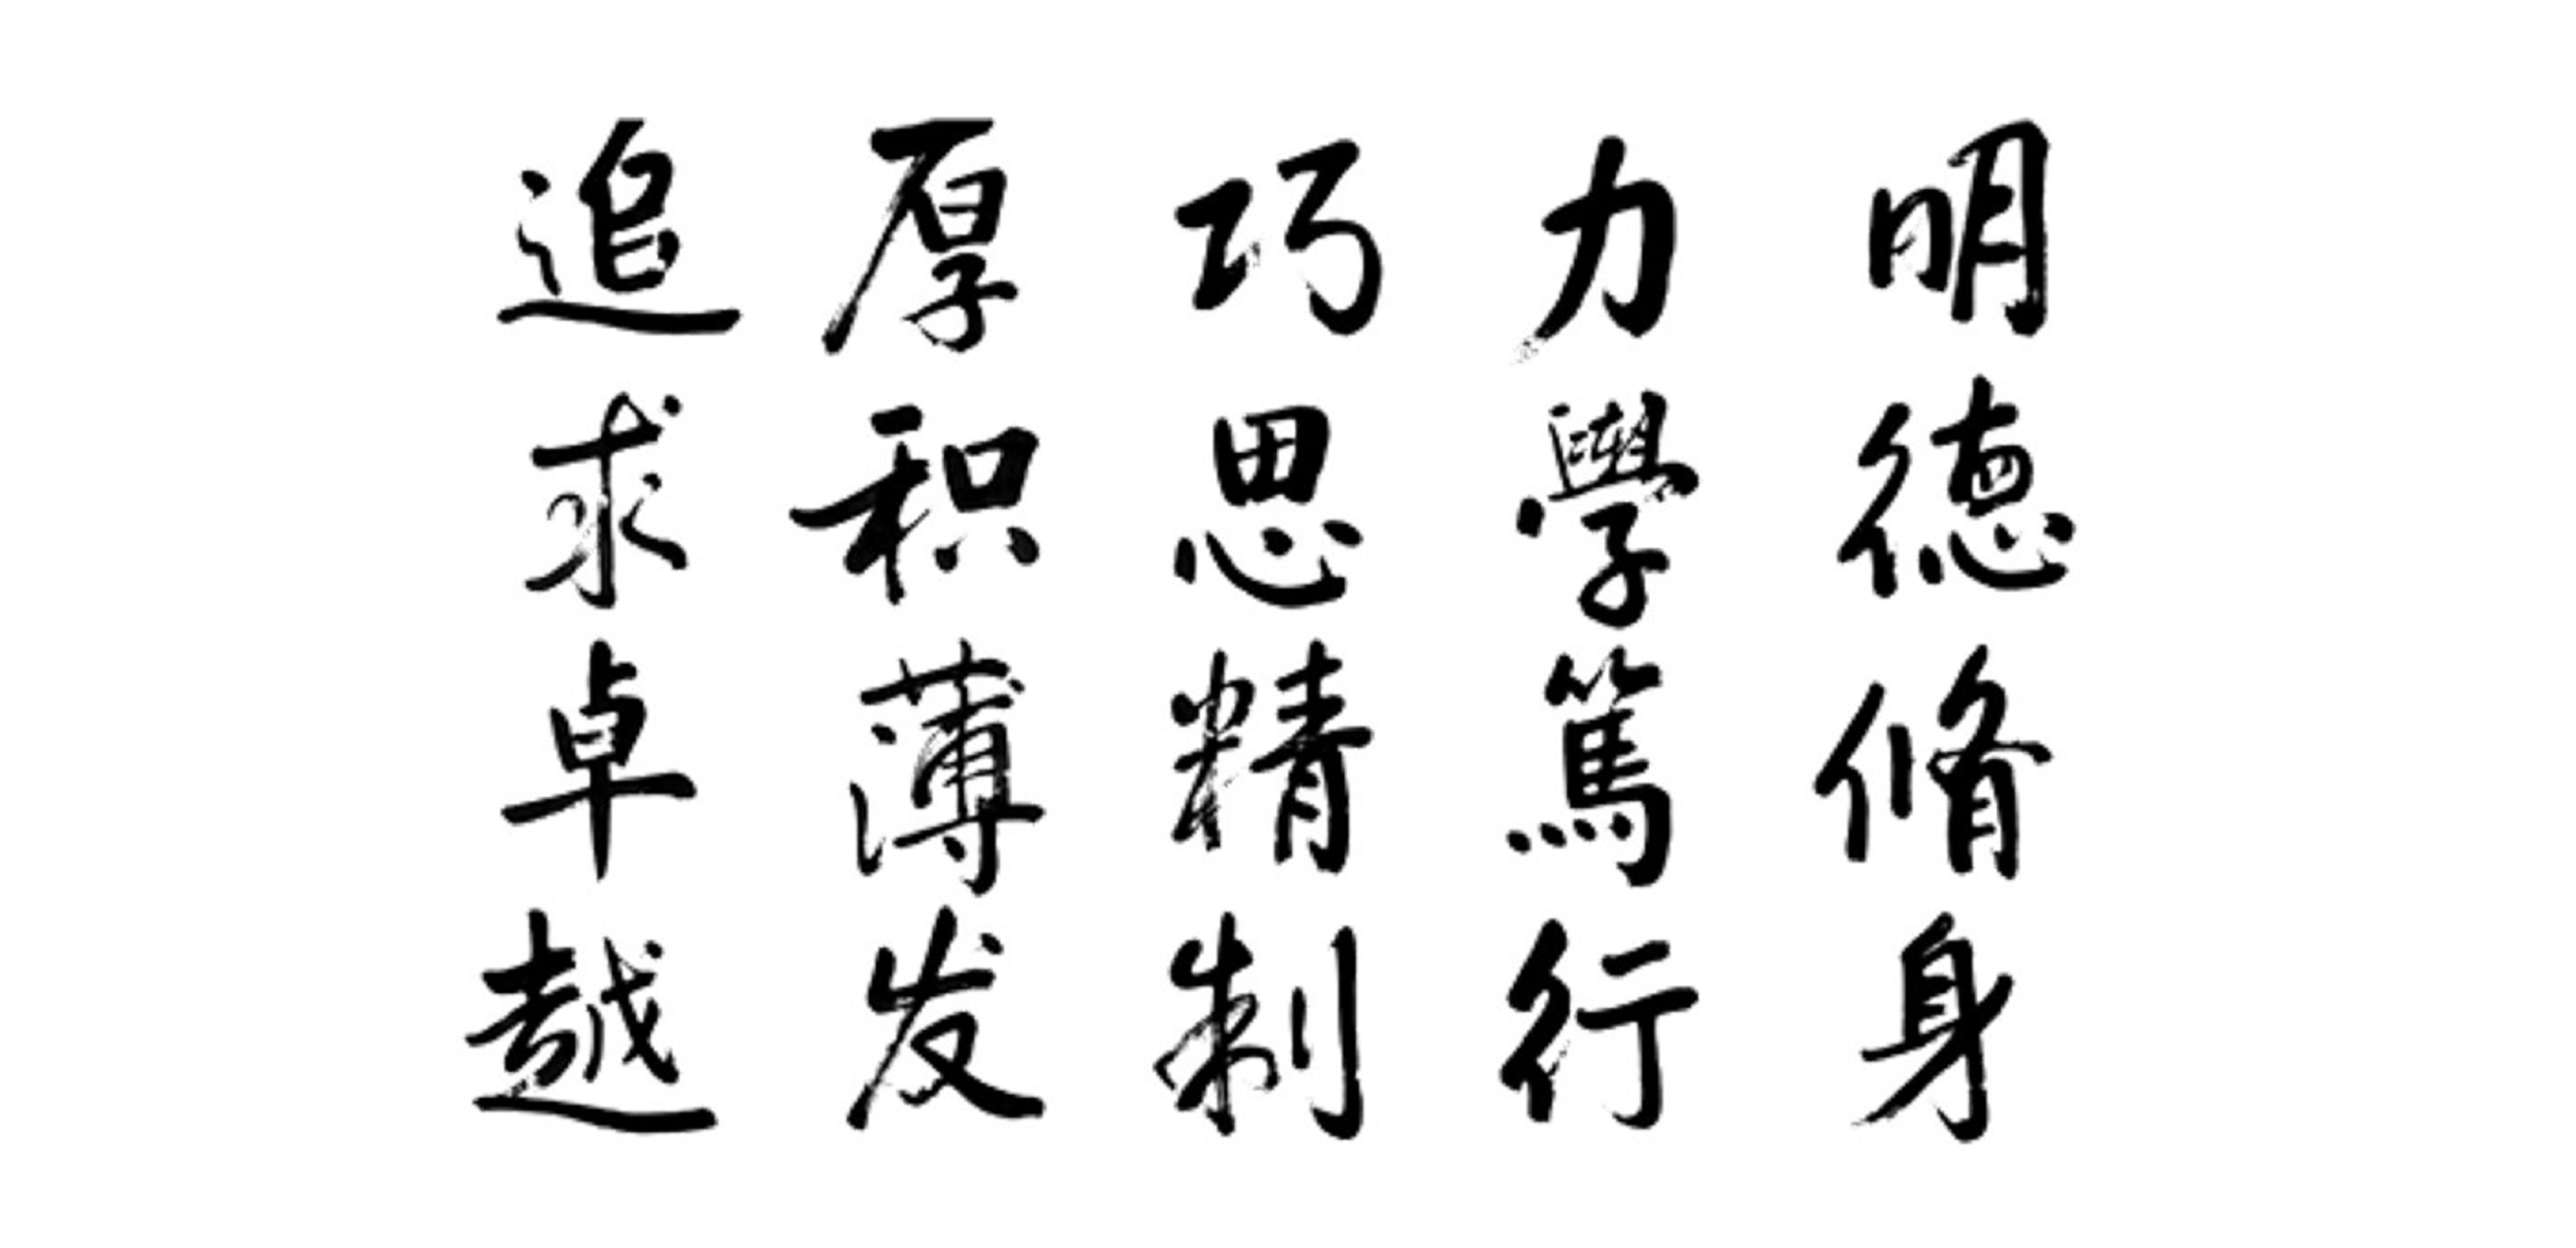 明德脩身
力學篤行
巧思精制
厚积薄发
追求卓越